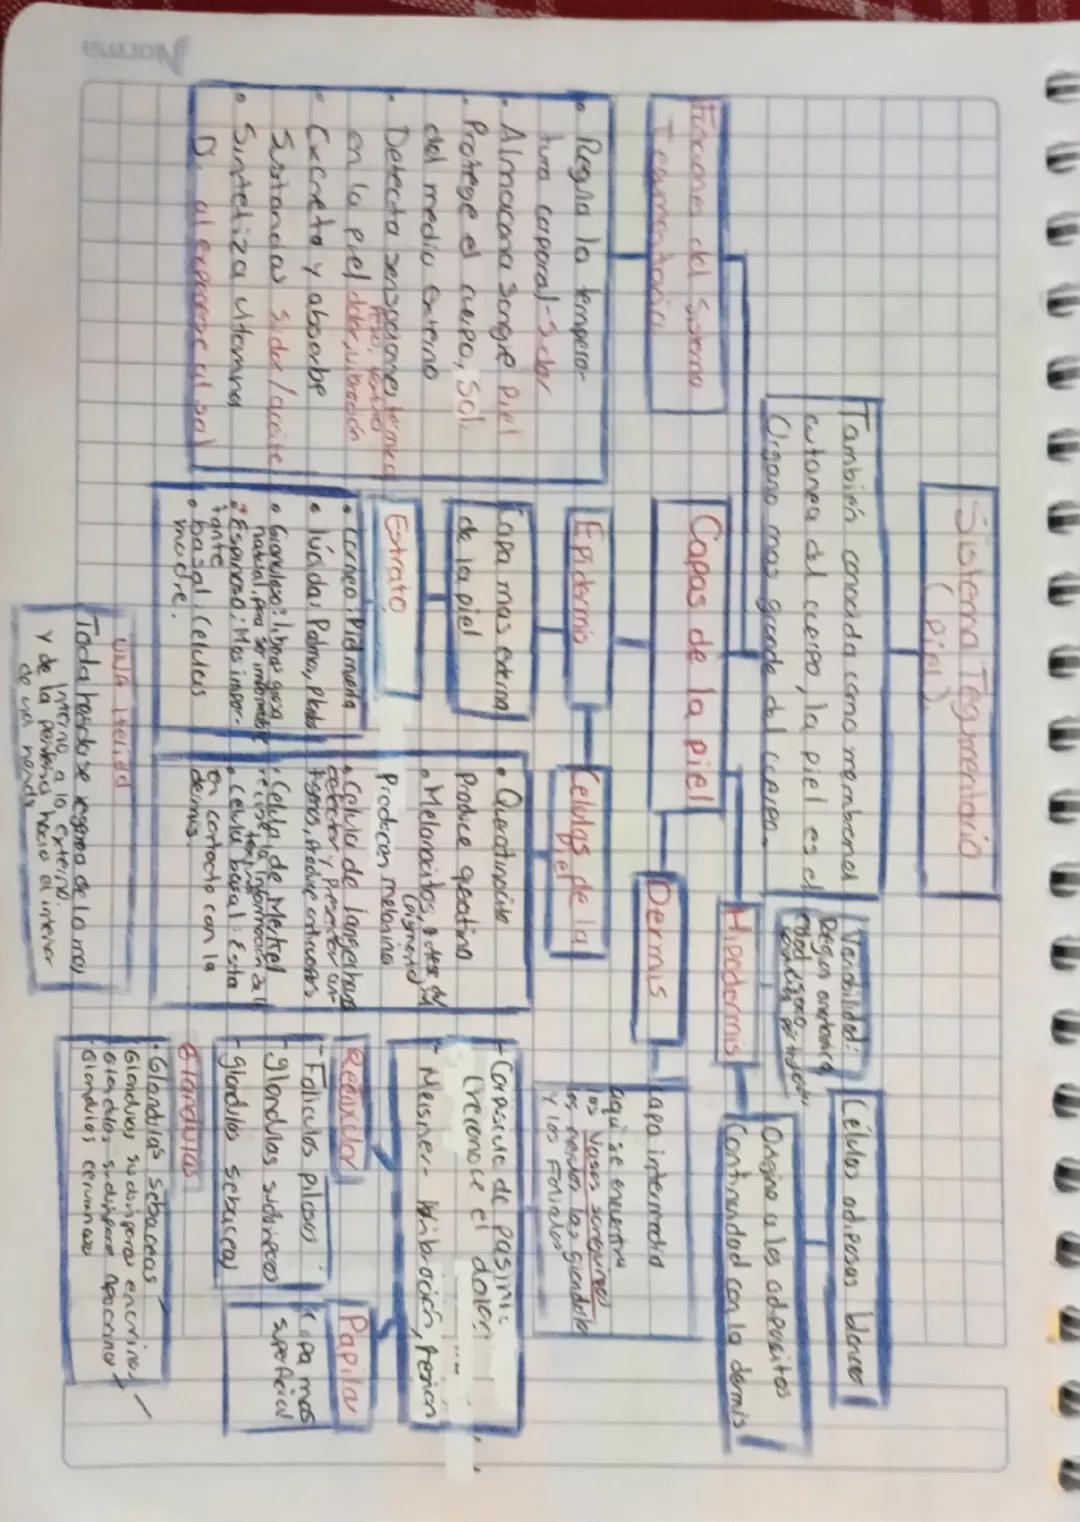 Sistema Tegumentario
(piel).
También conocida como membrana
cutanea del cuerpo, la piel es el
Organo mas grande del cuerpo.
Variabilidad:
Células adiposas blancas
Origina a los adipocitos
Continuidad con la dermis
Funciones del Sistema
Tegumentario
• Regula la tempera-
tura corporal-Sudor
• Almacena sangre Piel
• Protege el cuerpo, Sol,
del medio externo
• Detecta sensaciones termica
en la piel dolor, vibración
• Excreta y absorbe
Sustancias sudor/aceite
• Sintetiza vitamina
D, al exponerse al sol
Capas de la piel
Hipodermis
Dermis
Capa intermedia
aqui se encuentra
los vasos sanguineos
los nervios las glandulas
y los Foliculos
Epidermis
Celulas de la
piel
Capa mas externa
de la piel
Estrato
• Corneo: Piel muerta
• lúcida: Palma, Planta
• Granuloso: libera grasa
natural, para ser impermeable
• Espinoso: Mas impor-
tante
• basal: Celulas
madre.
• Queratinocito
Produce qeratina
• Melanocitos,
(pigmento)
Producen melanina
• Celula de langerhans
detector y presentar an-
tigenos, produce anticuerpos
• Celula de Merkel
• Celula basal: Esta
en contacto con la
dermis.
- Corpuscule de pasini:
(reconoce el dolor
- Meisner- Vibración, tension
Reticular
- Foliculos pilosos
- glandulas sudoriparas
- glandulas sebaceas
Papilar
Capa mas
superficial
Glandulas
• Glandulas sebaceas
• Glandulas sudoriparas encrinas
• Glandulas sudoripara apocrinas
• Glandulas ceruminosa
una herida
Toda herida se regenera de lo mas
interno a lo externo.
y de la periferia hacia el interior
de una herida
Norma